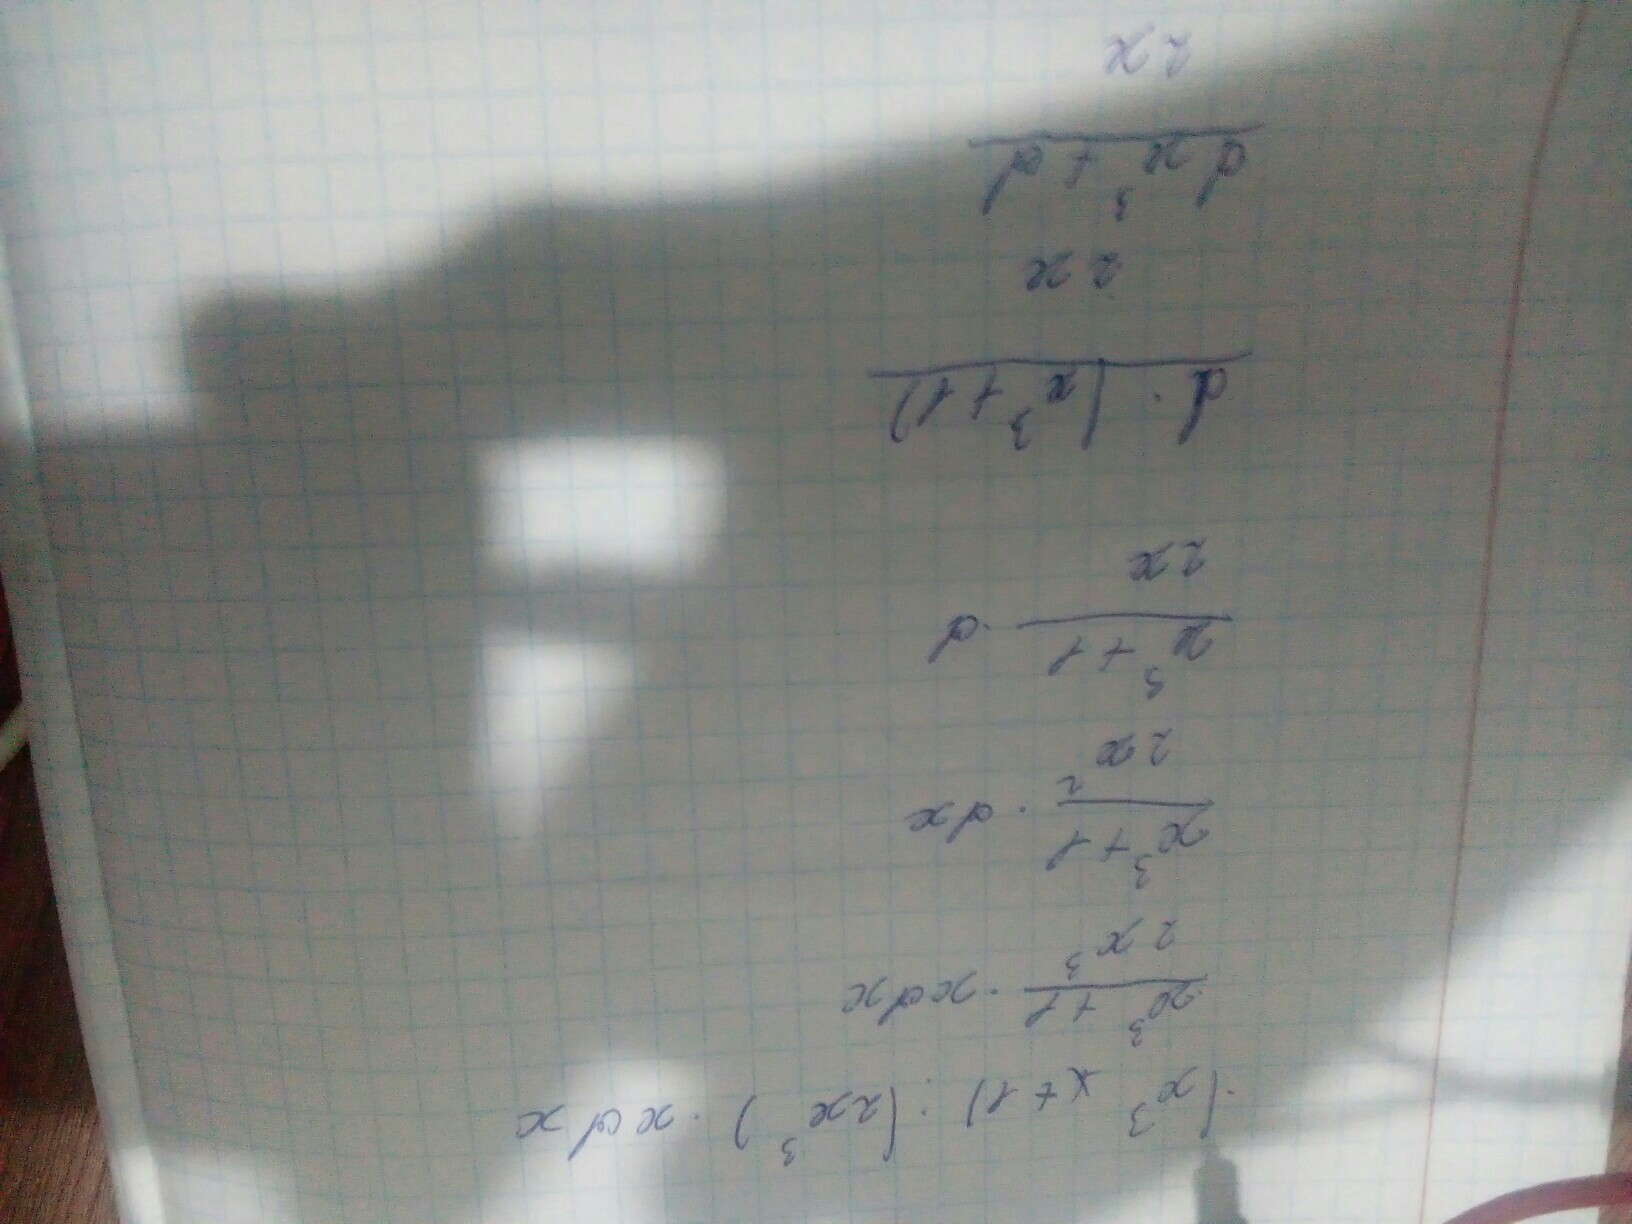 (x³ x + 1) : (2x³) · x d x
x³ + 1
2 x³ · x d x
x³ + 1
2 x² · d x
x³ + 1
2 x · d
d · (x³ + 1)
2 x
d x³ + d
2 x